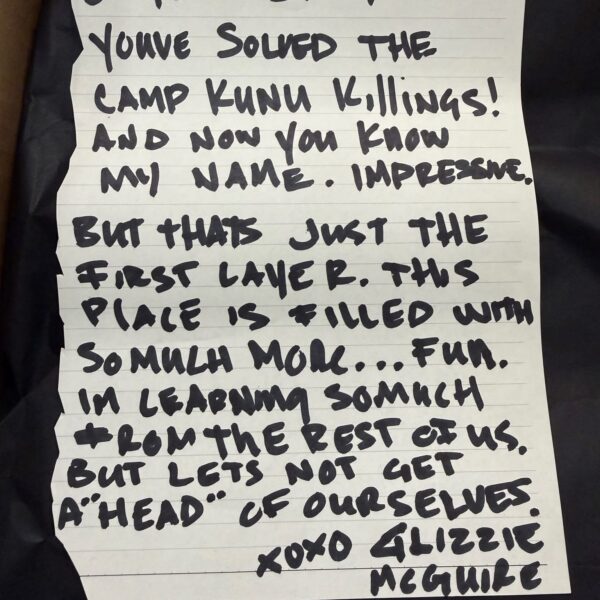 YOUVE SOLVED THE
CAMP KUNU KILLINGS!
AND NOW YOU KNOW
MY NAME. IMPRESSIVE.
BUT THATS JUST THE
FIRST LAYER. THIS
PLACE IS FILLED WITH
SO MUCH MORE... FUN.
IM LEARNING SOMUCH
FROM THE REST OF US.
BUT LETS NOT GET
A "HEAD" OF OURSELVES.
XOXO GLIZZIE
MCGUIRE